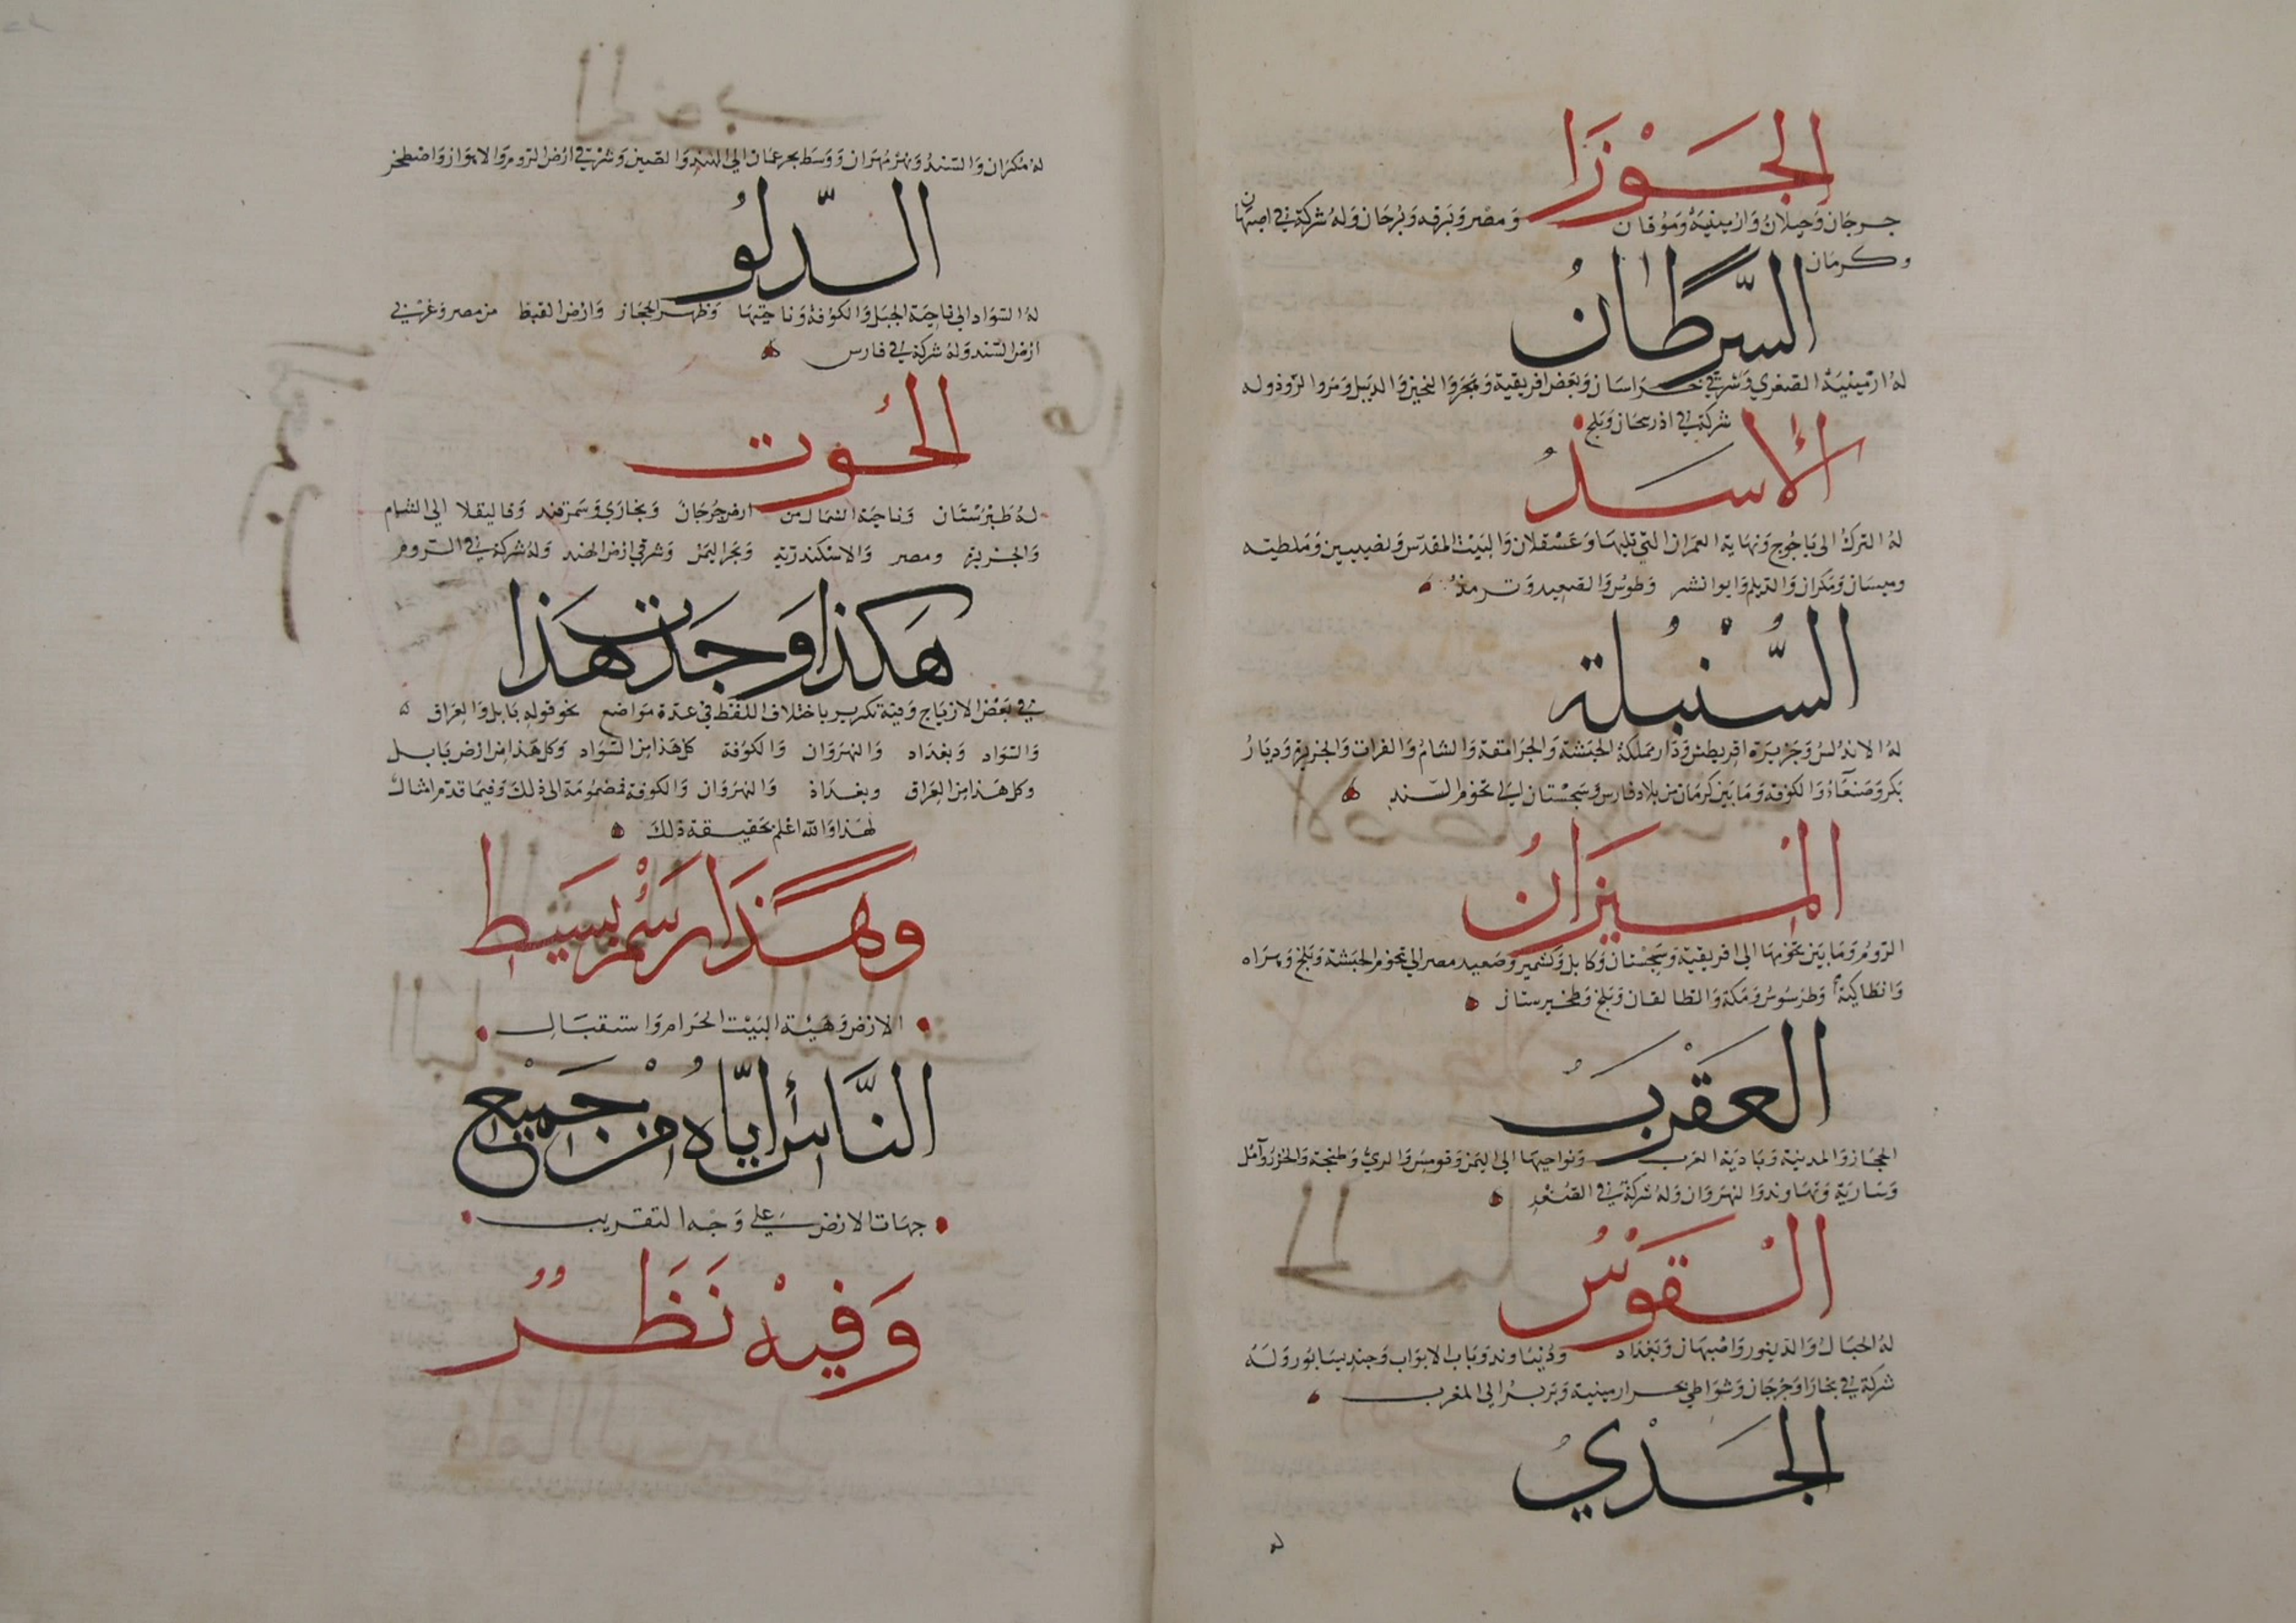 الجَوْزَا
جرجان وَجيلانُ وَارمينيَة وَمُوقان وَمصْر وَبَرقه وَبُرجَان وَلهُ شركة في اصبهان
وكرمان
السَّرطانُ
لهُ ارمينيَة الصغري وَشرقي خراسَان وَبَعض افريقية وَهجَر وَالبحرين وَالديبل وَمَروا الرّوذ وله
شركة في اذربيجان وَبلخ
الأسَدُ
لهُ التركُ الى يَاجُوج وَنهَاية العمران التي تليهَا وَعَسْقلان وَالبَيْت المقدّس وَنصيبين وَمَلطيَه
وميسَان وَمَكران وَالدّيلم وَابوا نشر وَطوسُ وَالصّعيد وَترمذُ
السُّنْبُلة
لهُ الاندُلسُ وَجَزيرَة اقريطش وَدَار مَملكة الحبَشة وَالجرَامقة وَالشامُ وَالفرات وَالجزيرة وَديَارُ
بَكر وَصَنعَاءُ وَالكوفة وَمَا بَين كرمَان من بلاد فارس وَسَجسْتان الي تخوم السّند
الْمِيزَانُ
الرّومُ وَمَا بَين تخومهَا الى افريقية وَسَجسْتان وَكابل وَكشمير وَصَعيد مصر الي تخوم الحبَشة وَبَلخ وَهرَاه
وَانطاكية وَطرَسُوسُ وَمَكة وَالطالقان وَبَلخ وَطخيرستان
العَقْرَبُ
الحجَاز وَالمدينة وَبَاديَة العَرب وَنواحيهَا الى اليَمن وَقومِسُ وَالريُّ وَطنجة وَالخزرُ وَآمُل
وَسَاريَة وَنهَاوند وَالنهرَوَان وَلهُ شركة في الصُغد
الْقَوْسُ
لهُ الجبَالُ وَالدّينور وَاصْبهَان وَبَغدَاد وَدُنبَاوند وَبَاب الابوَاب وَجنديسَابُور وَلهُ
شركة في بخارَا وَجُرجَان وَشوَاطي بحر ارمينية وَبَربرُ الى المغرب
الجَدْيُ
له
لهُ مُكرَان وَالسّندُ وَنهرُ مُهرَان وَوَسَط بحر عمَان الي الهند وَالصّين وَشرقي ارْض الرّوم وَالاهوَاز وَاصْطخر
الدّلوُ
لهُ السّوَاد الى ناحيَة الجبَل وَالكوُفة وَناحيَتهَا وَظهر الحجَاز وَارْض القبط من مصر وَغربي
ارْض السّند وَلهُ شركة في فارس
الحُوت
لهُ طبَرسْتان وَناحيَة الشمال من ارض جُرجَان وَبخارَي وَسَمرقند وَقاليقلا الي الشام
وَالجزيرة ومصر وَالاسْكندريّة وَبحر اليَمن وَشرقي ارْض الهند وَلهُ شركة في الرّوم
هَكذا وَجَدت هَذا
في بَعْض الازياج وَفيه تكرير باختلاف اللفظ في عدّة مَوَاضع نحو قوله بَابل وَالعِرَاق
وَالسّوَاد وَبغدَاد وَالنهرَوَان وَالكوُفة كل هَذا من السّوَاد وَكل هَذا من ارْض بَابل
وكل هَذا من العِرَاق وبغدَاد وَالنهرَوَان وَالكوفة مَضمُومَة الى ذلك وَفيمَا قدّم امثال
لهَذا وَالله اعْلم بحَقيقة ذلك
وهكَذَا رَسْمُ بَسَيط
الارْض وَهَيْئة البَيْت الحَرام وَاستقبَال
النَّاسُ ايّاهُ مِنْ جَميْع
جهَات الارْض عَلى وَجْه التقريب
وَفِيْهِ نَظَرٌ